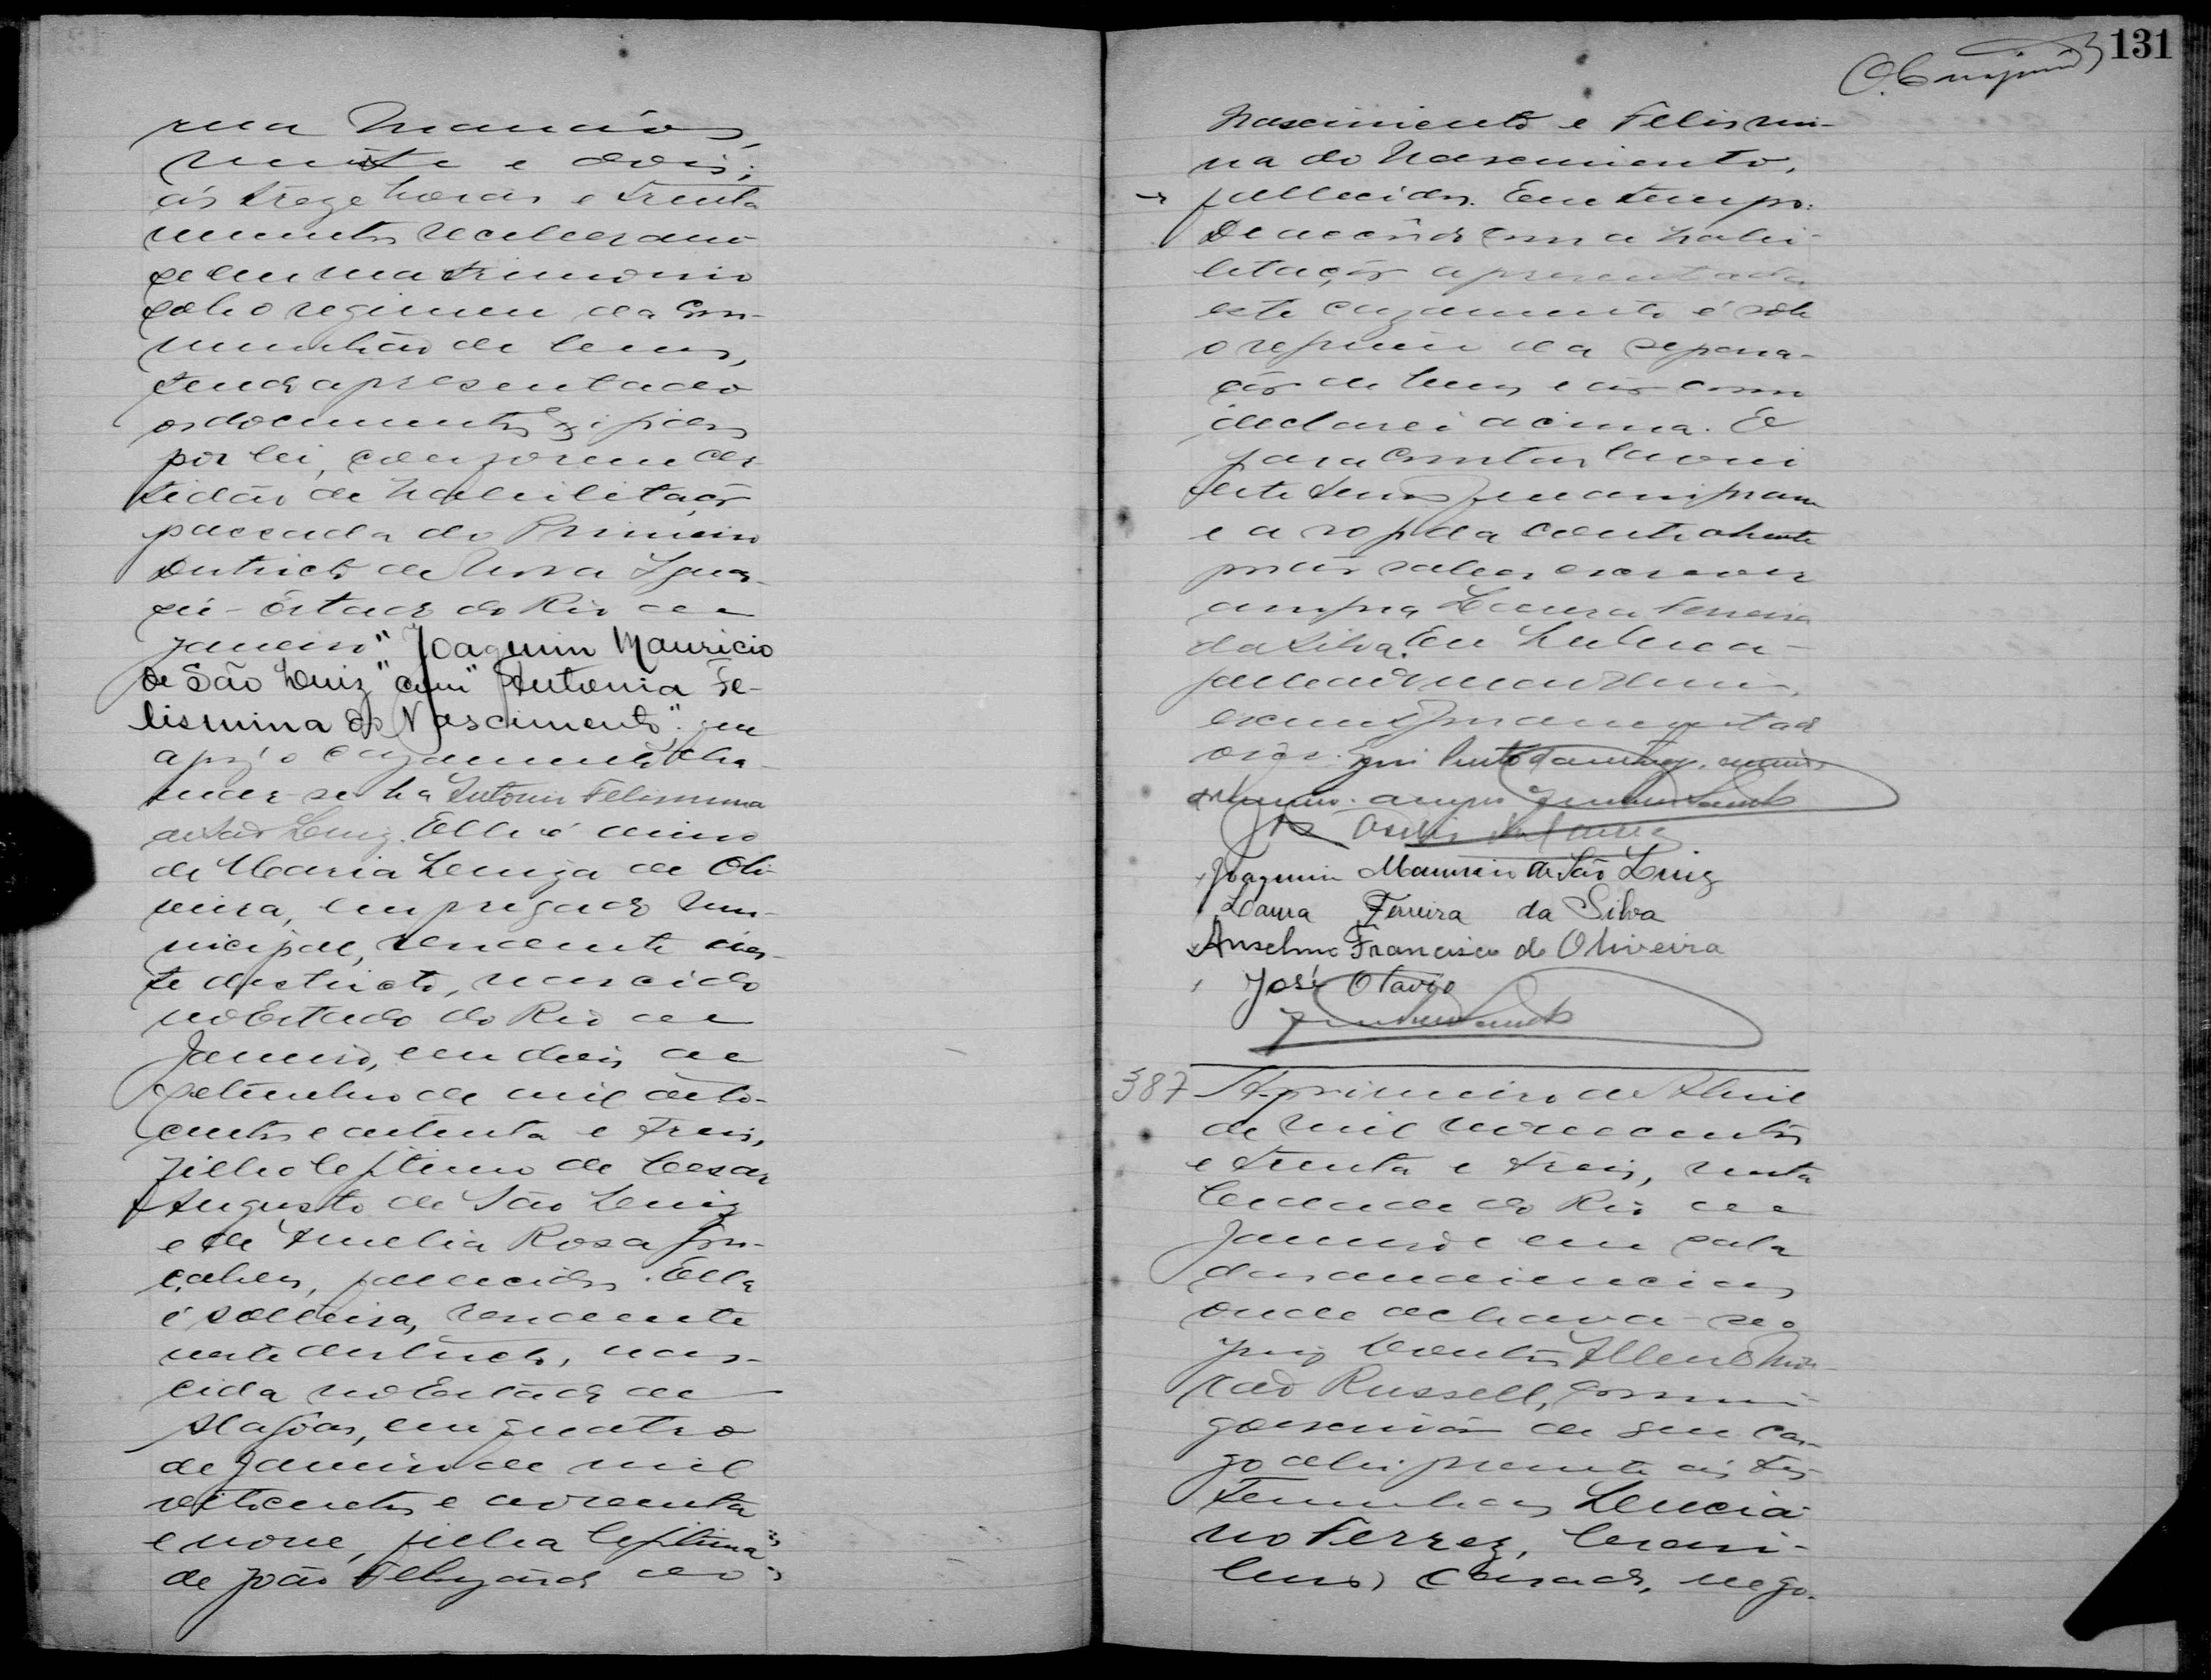 rua
vinte e dois;
ás treze horas e trinta
minutos receberam-
se em matrimonio
sob o regimen da com-
munhão de bens,
tendo apresentado
os documentos exigidos
por lei, cer-
tidão de habilitação
passada do Primeiro
Districto de Nova Iguas-
sú - Estado do Rio de
Janeiro "Joaquim Mauricio
de São Luiz" com "Antonia Fe-
lismina do Nascimento", que
após o cazamento cha-
mar-se-ha Antonia Felismina
de São Luiz. Elle é
de Maria Luiza de Oli-
veira, empregado mu-
nicipal, residente nes-
te districto, nascido
no Estado do Rio de
Janeiro, em dois de
Setembro de mil oito-
centos e oitenta e tres,
filho legitimo de Cesar
Augusto de São Luiz
e de Amelia Rosa Gon-
çalves, fallecidos. Ella
é solteira, residente
neste districto, nas-
cida no Estado de
Alagôas, em quatro
de Janeiro de mil
oitocentos e noventa
e nove, filha legitima
de João do
131
Nascimento e Felismi-
na do Nascimento,
fallecidos. Em tempo:
De acôrdo com a habi-
litação apresentada
este cazamento é sob
o regimen da separa-
ção de bens e não como
declarei acima. E
para constar lavrei
este termo que assignam
e a rogo da contrahente
por não saber escrever
assigna Laura Ferreira
da Silva. Eu
escrevente juramentado
Joaquim Mauricio de São Luiz
Laura Ferreira da Silva
Anselmo Francisco de Oliveira
José Otavio
387 A primeiro de Abril
de mil novecentos
e trinta e tres, nesta
Cidade do Rio de
Janeiro e em sala
das audiencias
onde achava-se o
Juiz Doutor
Russell, commi-
go escrivão de seu car-
go ahi presente ás tes-
temunhas Lucia-
no Ferrez, brasi-
leiro, casado, nego-